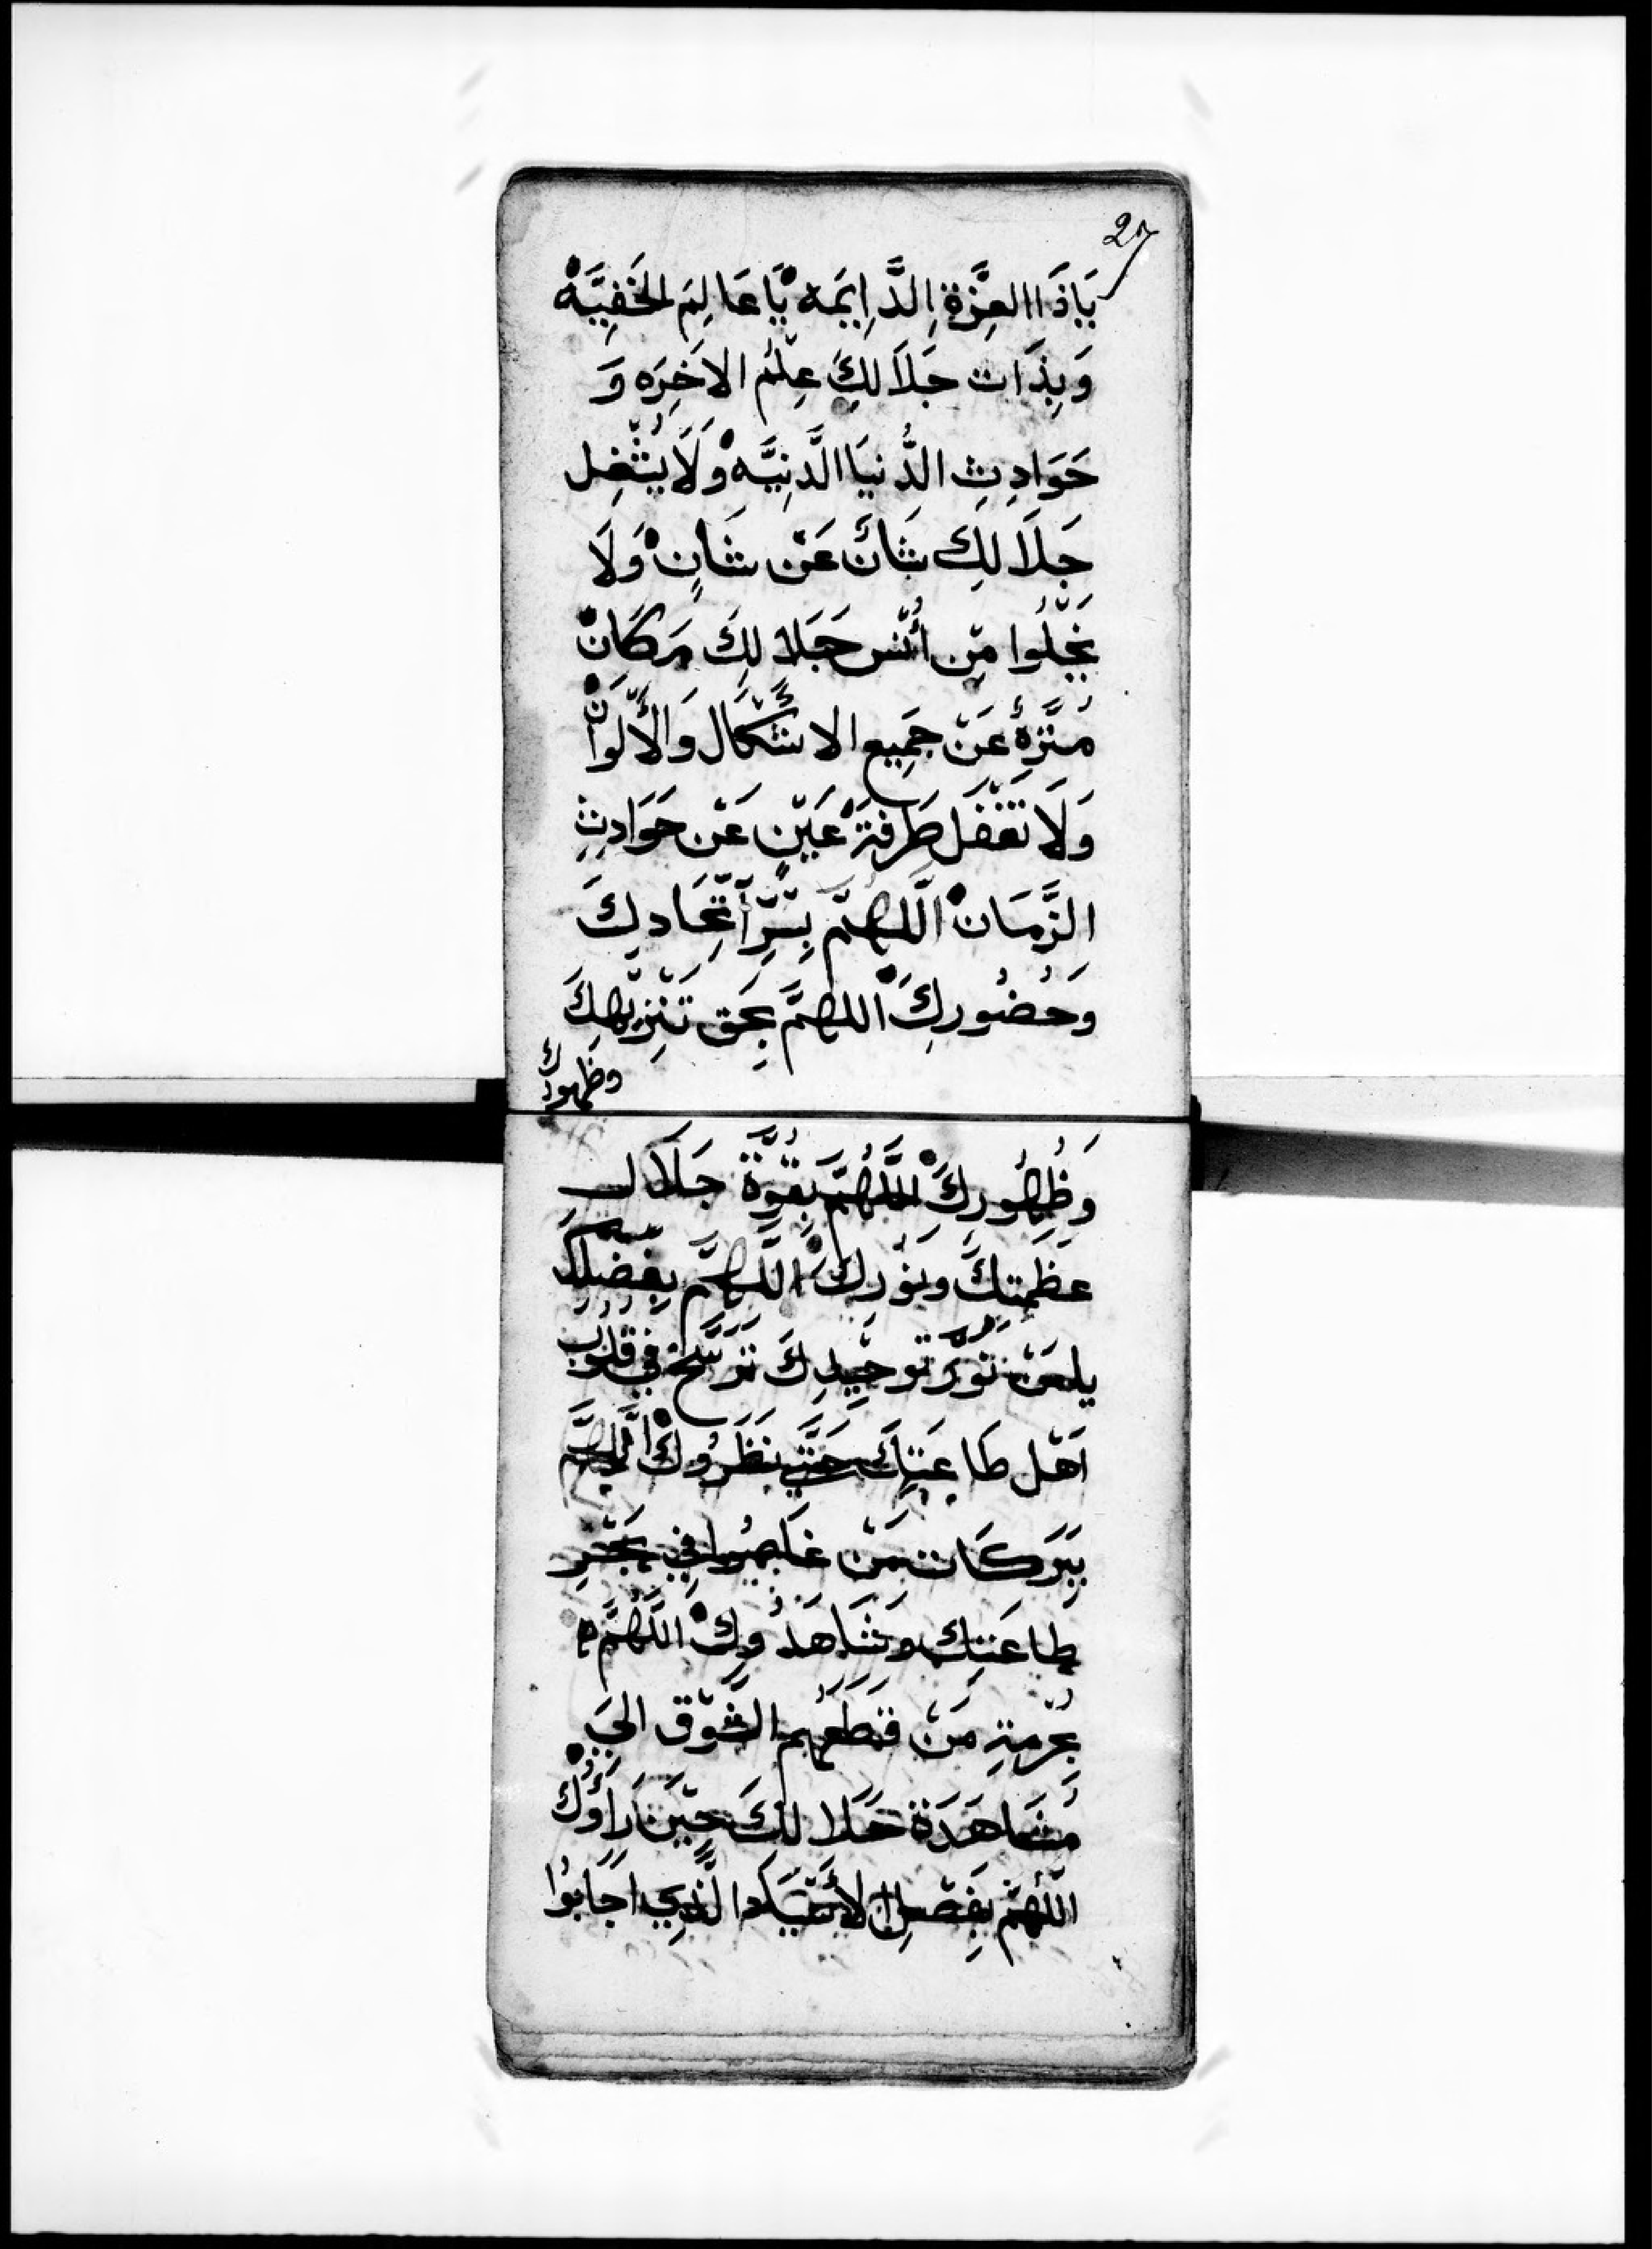 27
يَاذَا العِزَّةِ الدَّايِمَهْ يَا عَالِمَ الخَفِيَّهْ
وَبِذَات جَلَالِكَ عِلْمُ الاَخِرَه وَ
حَوَادِثِ الدُّنيَا الَّدنِيَّهْ وَلَا يُشْغِل
جَلَالِكَ شَانَ عَنْ شَانٍ وَلَا
يَخْلُوا مِن أُنْسِ جَلَالِكَ مَكَانْ
مُنَزَّهُ عَنْ جَمِيع الاشْكَال وَالأَلْوَانْ
وَلَا تَغْفَل طَرفَةَ عَيْنٍ عَن حَوَادِثِ
الزَّمَانْ اللَّهمَّ بِسِّرِّ آتِّحَادِكَ
وَحُضُورِكَ اللهمَّ بِحَق تَنْزِيْهِكَ
وظهورك
وَظُهُورِكَ اللَّهُمَّ بِقُوَّةِ جَلَال
عَظَمَتِكَ وَنُورِكَ اللَّهمَّ بِفَضْلِكَ
يامَنْ نُورَ تَوحِيدِكَ تَرَسَّخ في قلُوب
اَهْل طَاعَتِكَ حَتَّي نَظَرُوكْ اللَّهمَّ
بِبَرَكَات مَنْ غَاصُوا فِي بَحْرِ
طاعَتِكَ وَشَاهَدُوكْ اللَّهُمَّ
بِحُرْمَةِ مَنْ قَطَعَهُم الشَّوْق اليَ
مُشَاهَدَةِ جَلَالِكَ حِيْنَ رَأَوْكْ
اللَّهُمَّ بِفَضْلِ الأَسْيَاد الَّذِي اجَابُوا